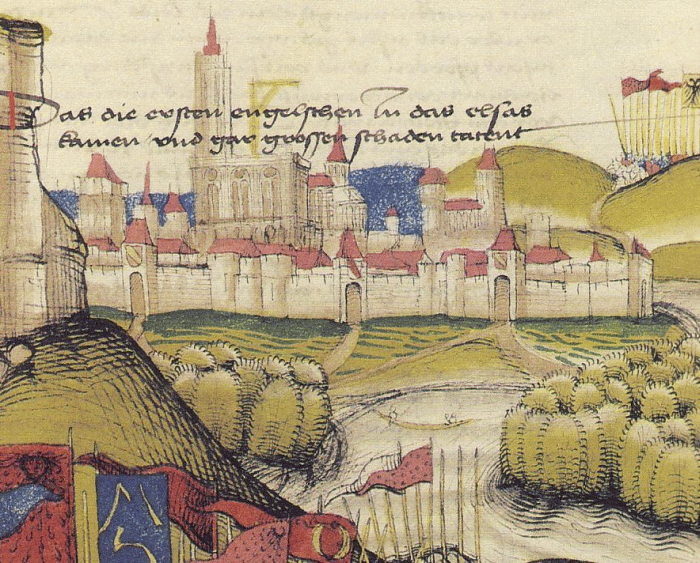 Das die ersten engelschen In das elsas
kamen vnd gar grossen schaden tatent